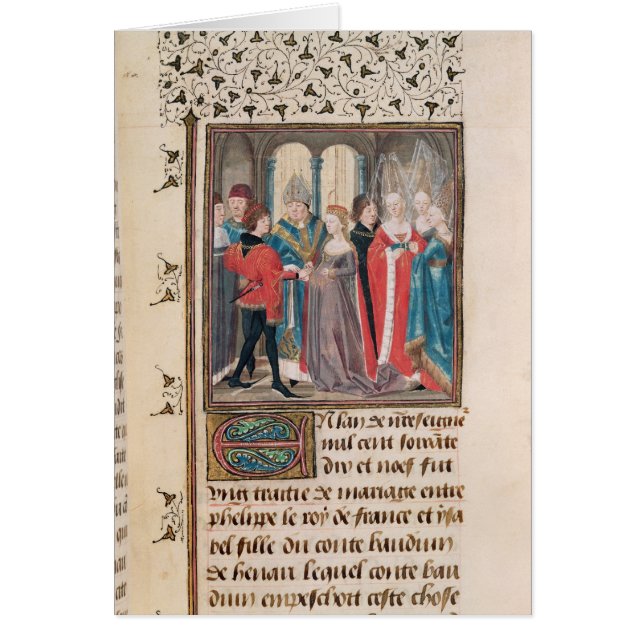 En lan de nr̃e seigne᷑
mil cent soixante
dix et noef fut
vng traitie de mariage entre
phelippe le roy de france et ysa
bel fille du conte bauduin
de henau lequel conte bau
duin empeschoit ceste chose